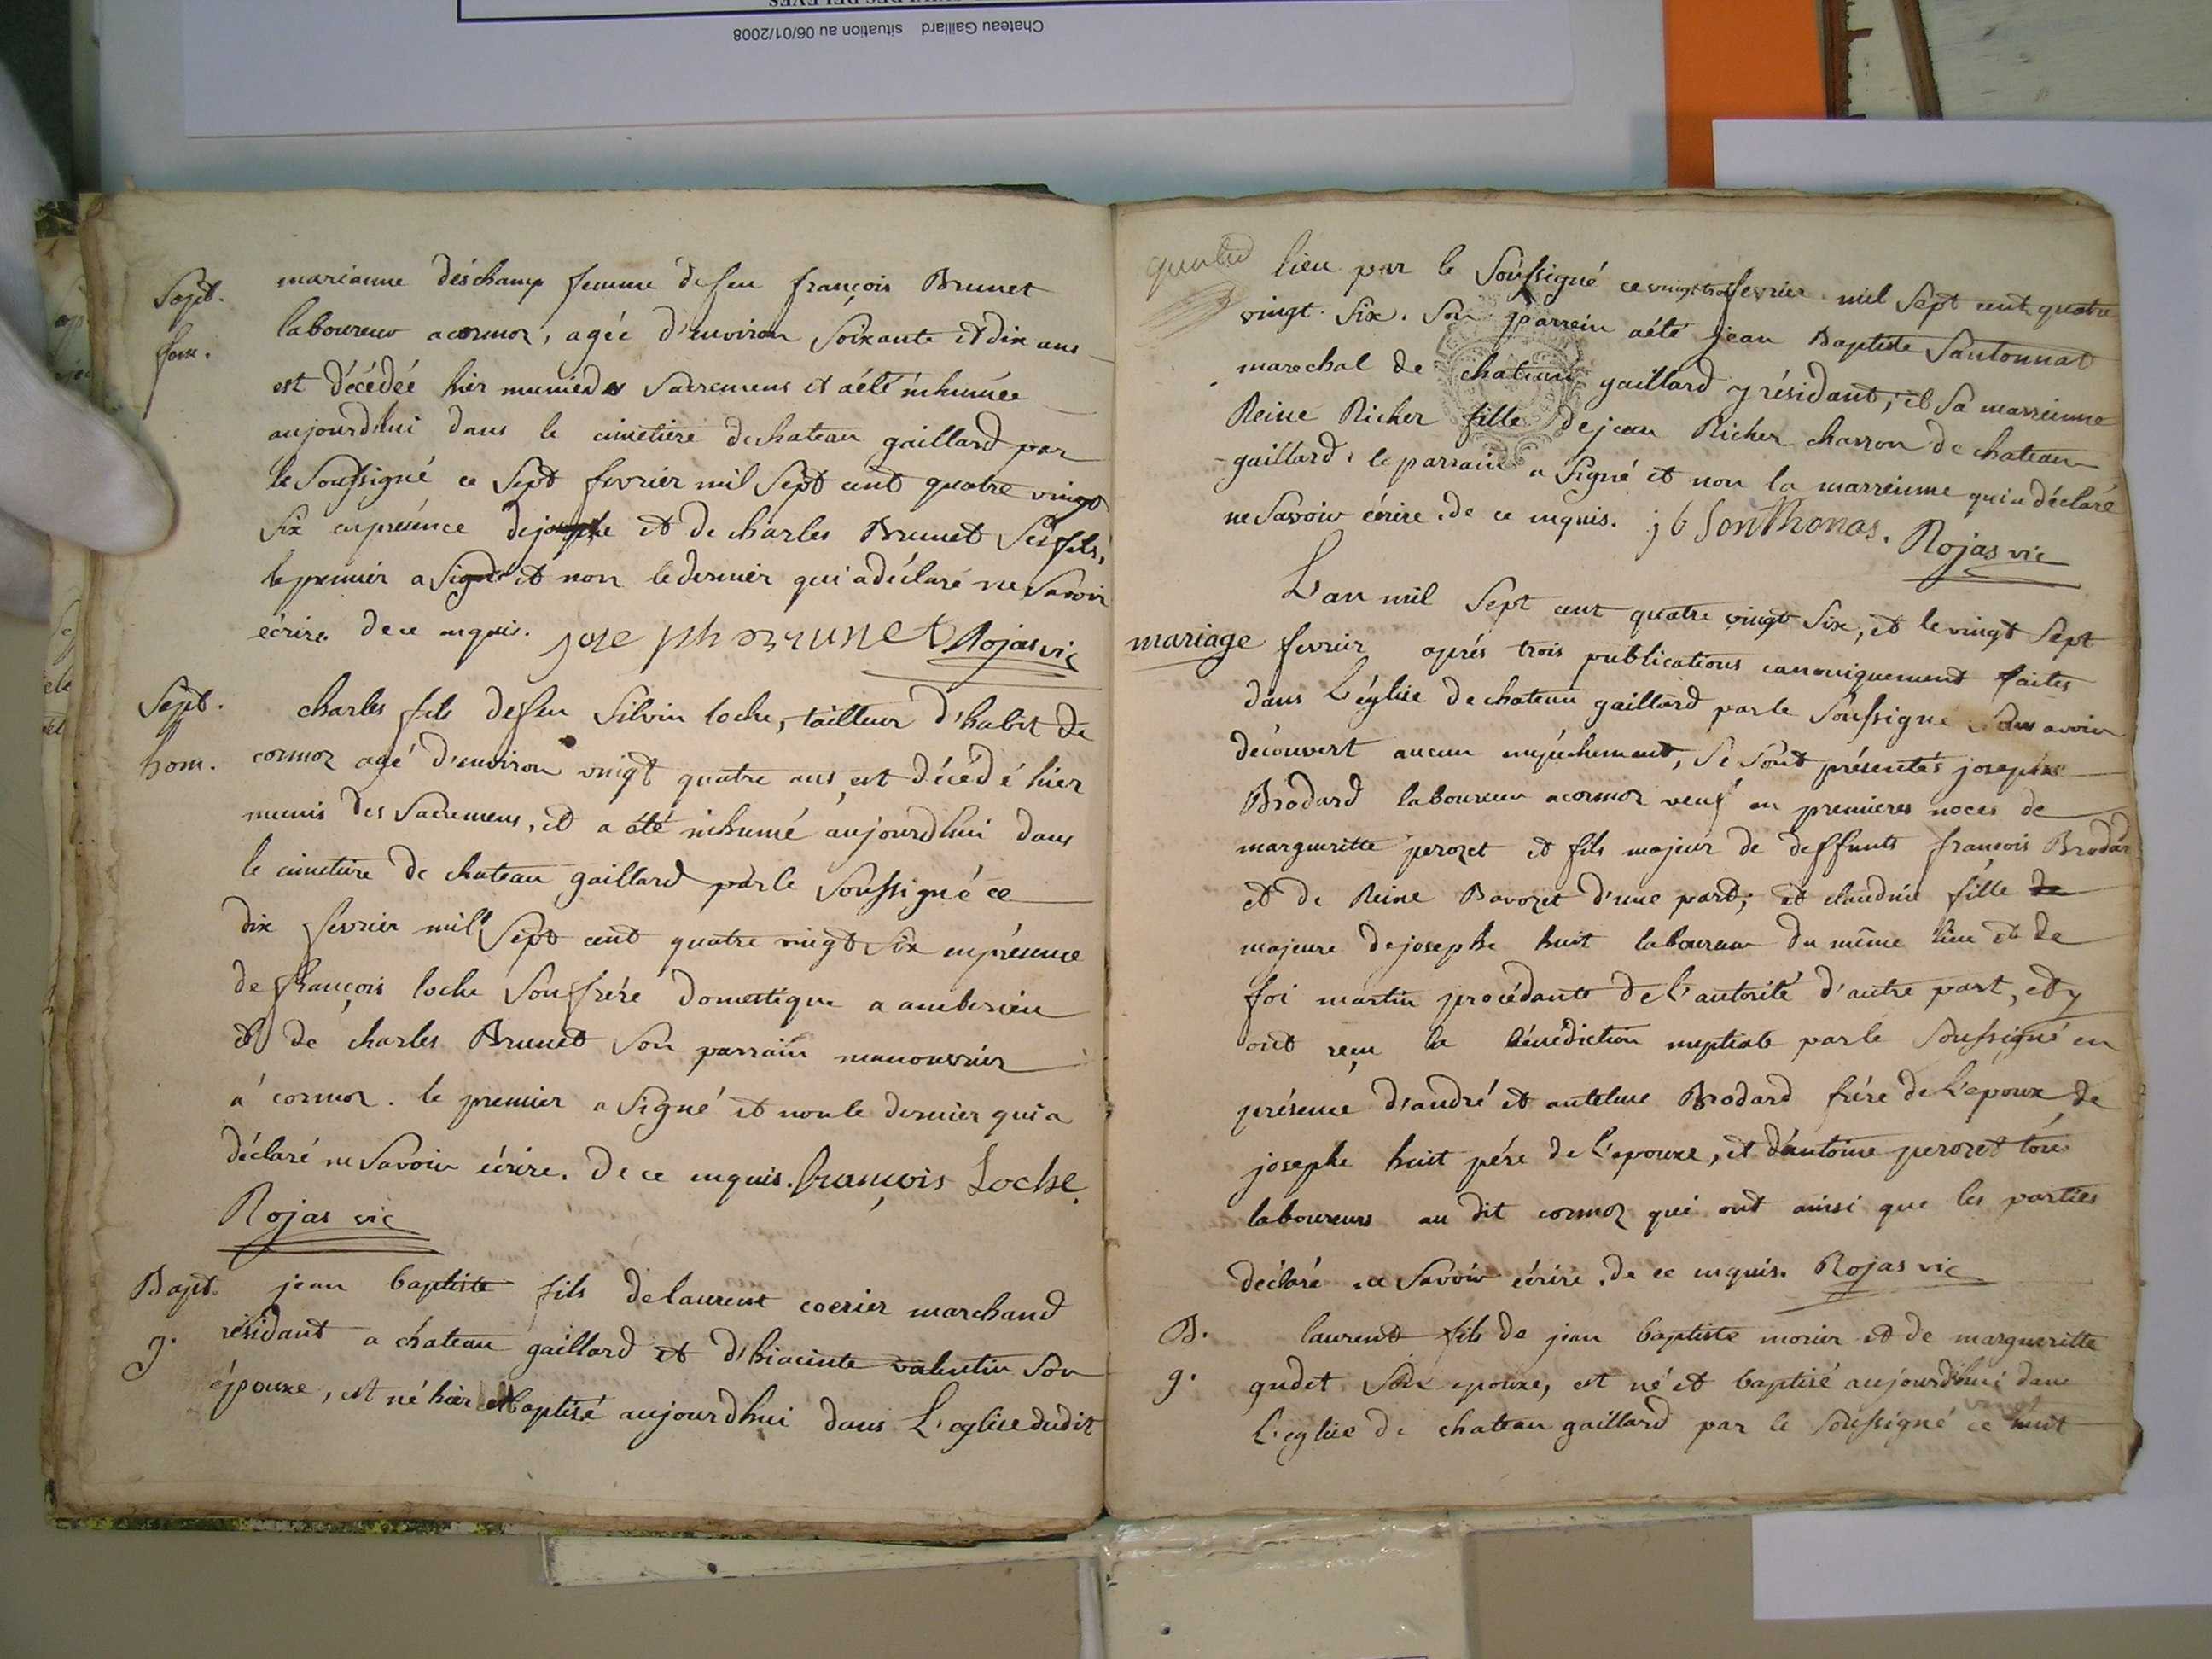 Chateau Gaillard situation au 06/01/2008
Sept.
fem.
marianne déschamp femme de feu françois Brunet
laboureur a cormoz, agée d'environ soixante et dix ans
est décédée hier munie des sacremens et a été inhumée
aujourdhui dans le cimetière de chateau gaillard par
le soussigné ce sept fevrier mil sept cent quatre vingt
six en présence de josephe et de charles Brunet ses fils,
le premier a signé et non le dernier qui a déclaré ne savoir
écrire. de ce enquis. joseph brunet Rojas vic
Sept.
hom.
charles fils de feu silvin loche, tailleur d'habit de
cormoz agé d'environ vingt quatre ans, est décédé hier
munis des sacremens, et a été inhumé aujourdhui dans
le cimetière de chateau gaillard par le soussigné ce
dix fevrier mil sept cent quatre vingt six en présence
de françois loche son frére domestique a amberieu
et de charles Brunet son parrain manouvrier
à cormoz. le premier a signé et non le dernier qui a
déclaré ne savoir écrire. de ce enquis. françois Loche.
Rojas vic
Bapt.
g.
jean baptiste fils de laurent coerier marchand
résidant a chateau gaillard et d'hiacinte valentin son
épouxe, est né hier et baptisé aujourdhui dans L'eglise dudit
lieu par le soussigné ce vingt trois fevrier mil sept cent quatre
vingt six. son parrein a été jean Baptiste Santonnat
marechal de chateau gaillard y résidant, et sa marreinne
Reine Richer fille de jean Richer charron de chateau
gaillard. le parrain a signé et non la marreinne qui a déclaré
ne savoir écrire. de ce enquis. j b sonthonas. Rojas vic
mariage
L'an mil sept cent quatre vingt six, et le vingt sept
fevrier aprés trois publications canoniquement faites
dans L'église de chateau gaillard par le soussigné sans avoir
découvert aucun empéchement, se sont présentés josephe
Brodard laboureur a cormoz veuf en premieres noces de
margueritte perozet et fils majeur de deffunts françois Brodard
et de Reine Bavozet d'une part; et claudine fille de
majeure de josephe huit laboureur du même lieu et de
foi martin procédante de l'autorité d'autre part, et y
ont reçu la bénédiction nuptiale par le soussigné en
présence d'andré et antelme Brodard frére de l'epoux, de
josephe huit pére de l'epouxe, et d'antoine perozet tous
laboureurs au dit cormoz qui ont ainsi que les parties
déclaré ne savoir écrire. de ce enquis. Rojas vic
B.
g.
laurent fils de jean baptiste morier et de margueritte
gudet son epouxe, est né et baptisé aujourdhui dans
L'eglise de chateau gaillard par le soussigné ce vingt huit